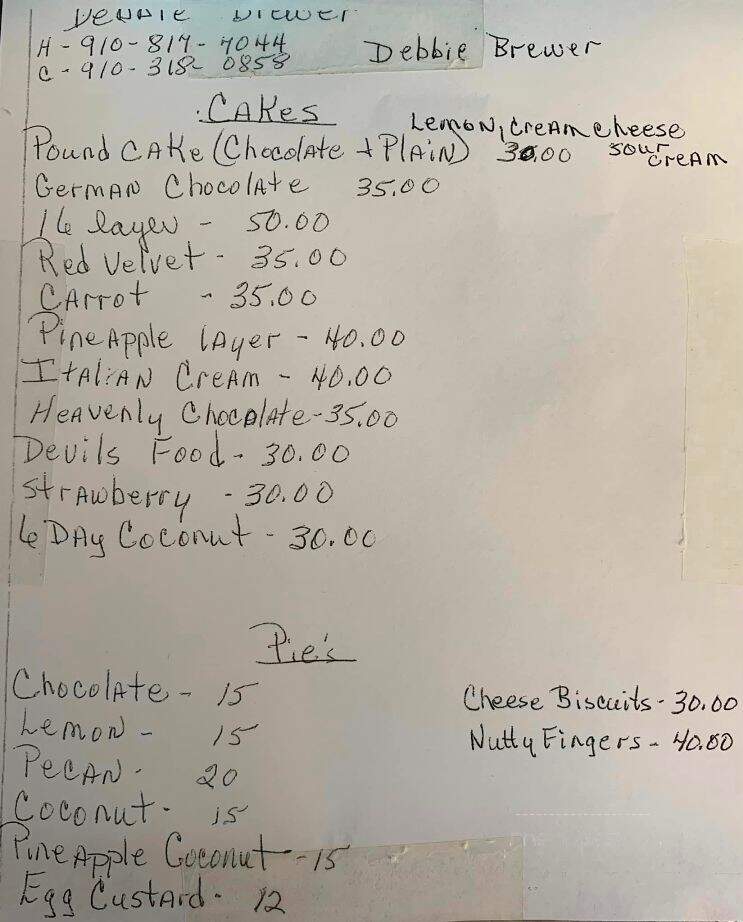 Debbie Brewer
H - 910-817-7044
C - 910-318-0858
Debbie Brewer
Cakes
Lemon, cream cheese
Pound Cake (Chocolate + Plain) 30.00 sour cream
German Chocolate 35.00
16 layer - 50.00
Red Velvet - 35.00
Carrot - 35.00
Pineapple layer - 40.00
Italian Cream - 40.00
Heavenly Chocolate - 35.00
Devils Food - 30.00
Strawberry - 30.00
6 Day Coconut - 30.00
Pie's
Chocolate - 15
Lemon - 15
Pecan - 20
Coconut - 15
Pineapple Coconut - 15
Egg Custard - 12
Cheese Biscuits - 30.00
Nutty Fingers - 40.00